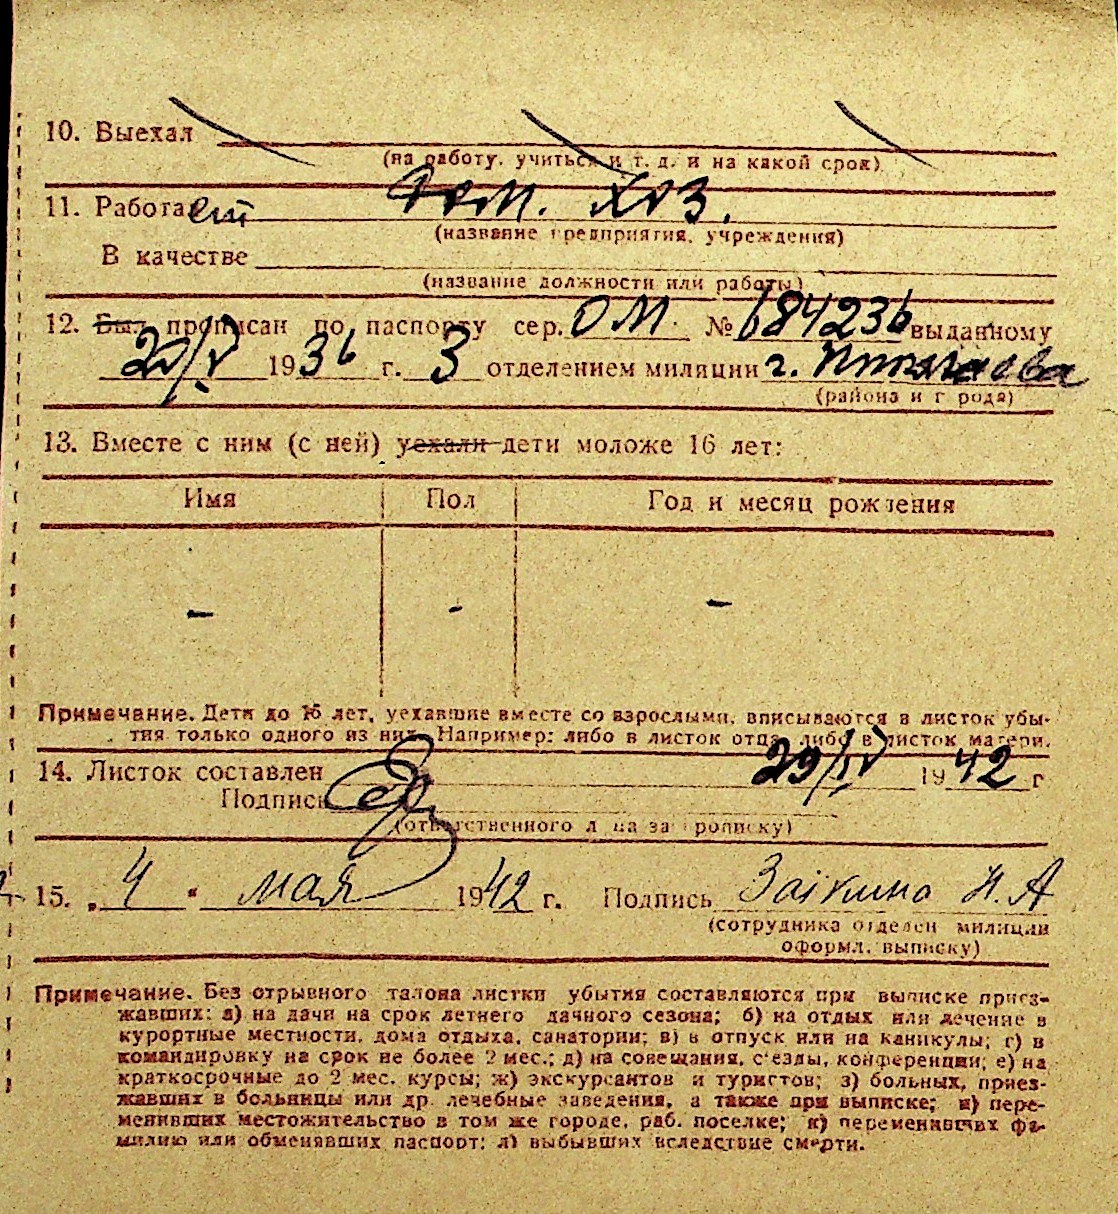 10. Выехал
(на работу, учиться и т. д. и на какой срок)
11. Работает Дом. хоз.
(название предприятия, учреждения)
В качестве
(название должности или работы)
12. Был прописан по паспорту сер. ОМ № 684236 выданному
20/V 1936 г. 3 отделением милиции г.
(района и города)
13. Вместе с ним (с ней) уехали дети моложе 16 лет:
Имя Пол Год и месяц рождения
- - -
Примечание. Дети до 16 лет, уехавшие вместе со взрослыми, вписываются в листок убы-
тия только одного из них. Например: либо в листок отца, либо в листок матери.
14. Листок составлен 29/IV 1942 г
Подпись
(ответственного лица за прописку)
15. „4“ мая 1942 г. Подпись Заікина Н. А
(сотрудника отделен милиции
оформл. выписку)
Примечание. Без отрывного талона листки убытия составляются при выписке приез-
жавших: а) на дачи на срок летнего дачного сезона; б) на отдых или лечение в
курортные местности, дома отдыха, санатории; в) в отпуск или на каникулы; г) в
командировку на срок не более 2 мес.; д) на совещания, съезды, конференции; е) на
краткосрочные до 2 мес. курсы; ж) экскурсантов и туристов; з) больных, приез-
жавших в больницы или др. лечебные заведения, а также при выписке; и) пере-
менивших местожительство в том же городе, раб. поселке; к) переменивших фа-
милию или обменявших паспорт; л) выбывших вследствие смерти.